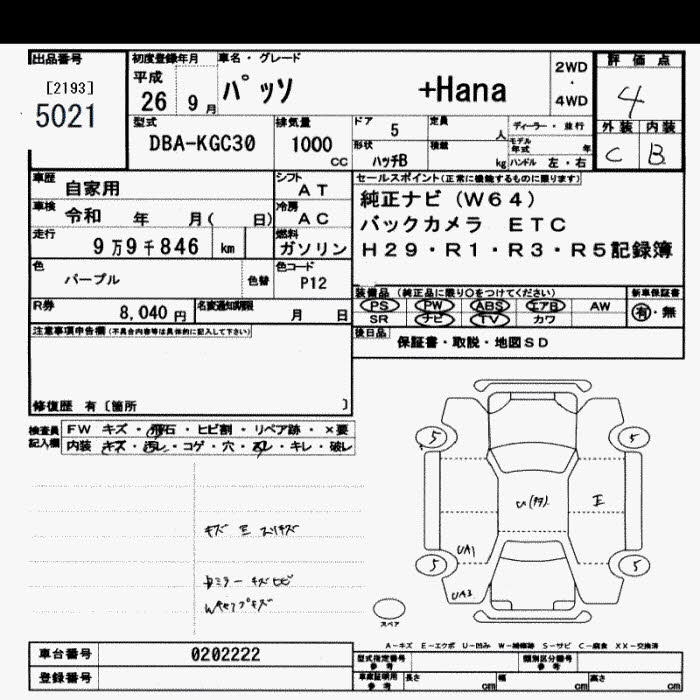 出品番号
[2193]
5021
初度登録年月
平成
26 9 月
車名・グレード
パッソ +Hana
2WD
・
4WD
評価点
4
外装 内装
C B
型式
DBA-KGC30
排気量
1000
CC
ドア 5
定員 人
ディーラー・並行
形状
ハッチB
積載 kg
モデル年式 年
ハンドル 左・右
車歴 自家用
シフト AT
車検 令和 年 月( 日)
冷房 AC
走行 9万9千846 km
燃料 ガソリン
色 パープル
色替
色コード P12
R券 8,040 円
名変通知期限 月 日
セールスポイント(正常に機能するものに限ります)
純正ナビ(W64)
バックカメラ ETC
H29・R1・R3・R5記録簿
装備品 (純正品に限り○をつけてください)
新車保証書
PS PW ABS エアB AW
SR ナビ TV カワ
有・無
後日品
保証書・取説・地図SD
注意事項申告欄(不具合内容等は具体的に記入して下さい)
修復歴 有〔箇所 〕
検査員記入欄
FW キズ・飛石・ヒビ割・リペア跡・×要
内装 キズ・汚レ・コゲ・穴・スレ・キレ・破レ
5 5
E
UA1
5 5
UA3
スペア
A-キズ E-エクボ U-凹み W-補修跡 S-サビ C-腐食 XX-交換済
車台番号 0202222
登録番号
型式指定番号 参考
類別区分番号 参考
車庫証明用 参考
長さ cm
幅 cm
高さ cm